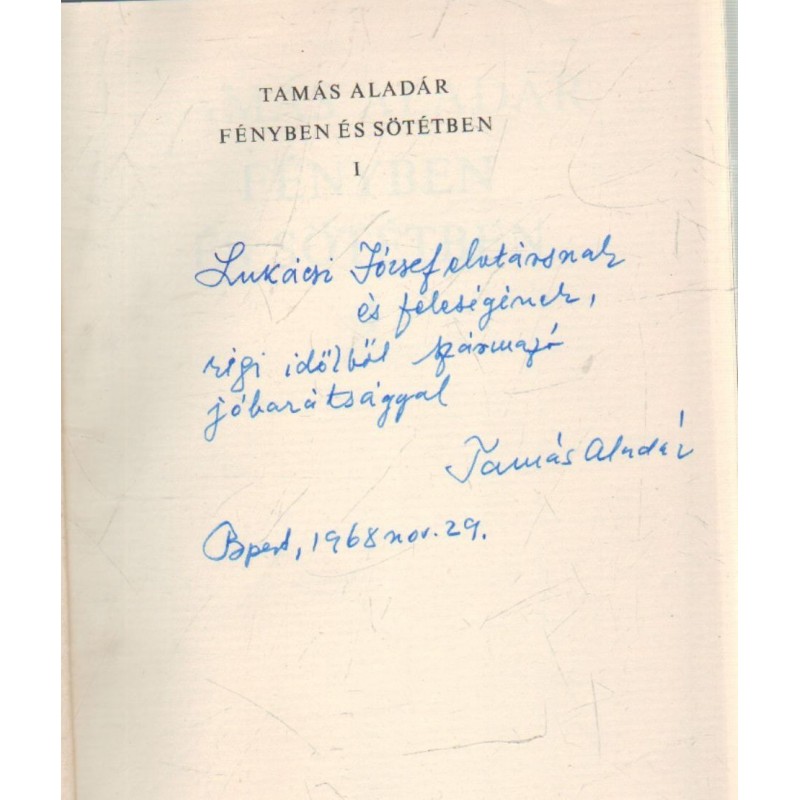 TAMÁS ALADÁR
FÉNYBEN ÉS SÖTÉTBEN
I
Lukácsi József elvtársnak
és feleségének,
régi időkből származó
jóbarátsággal
Tamás Aladár
Bpest, 1968 nov. 29.